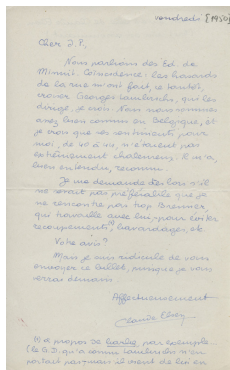 vendredi [1950]
Cher J.P.
Nous parlions des Ed. de
Minuit. Coïncidence : les hasards
de la rue m'ont fait, ce tantôt,
croiser Georges Lambrichs, qui les
dirige, je crois. Nous nous sommes
assez bien connus en Belgique, et
je crois que ses sentiments, pour
moi, de 40 à 45, n'étaient pas
extrêmement chaleureux. Il m'a,
bien entendu, reconnu.
Je me demande dès lors s'il
ne serait pas préférable que je
ne rencontre pas trop
qui travaille avec lui, pour éviter
recoupements, bavardages, etc
Votre avis?
Mais je suis ridicule de vous
envoyer ce billet, puisque je vous
verrai demain
Affectueusement
(1) à propos de par exemple